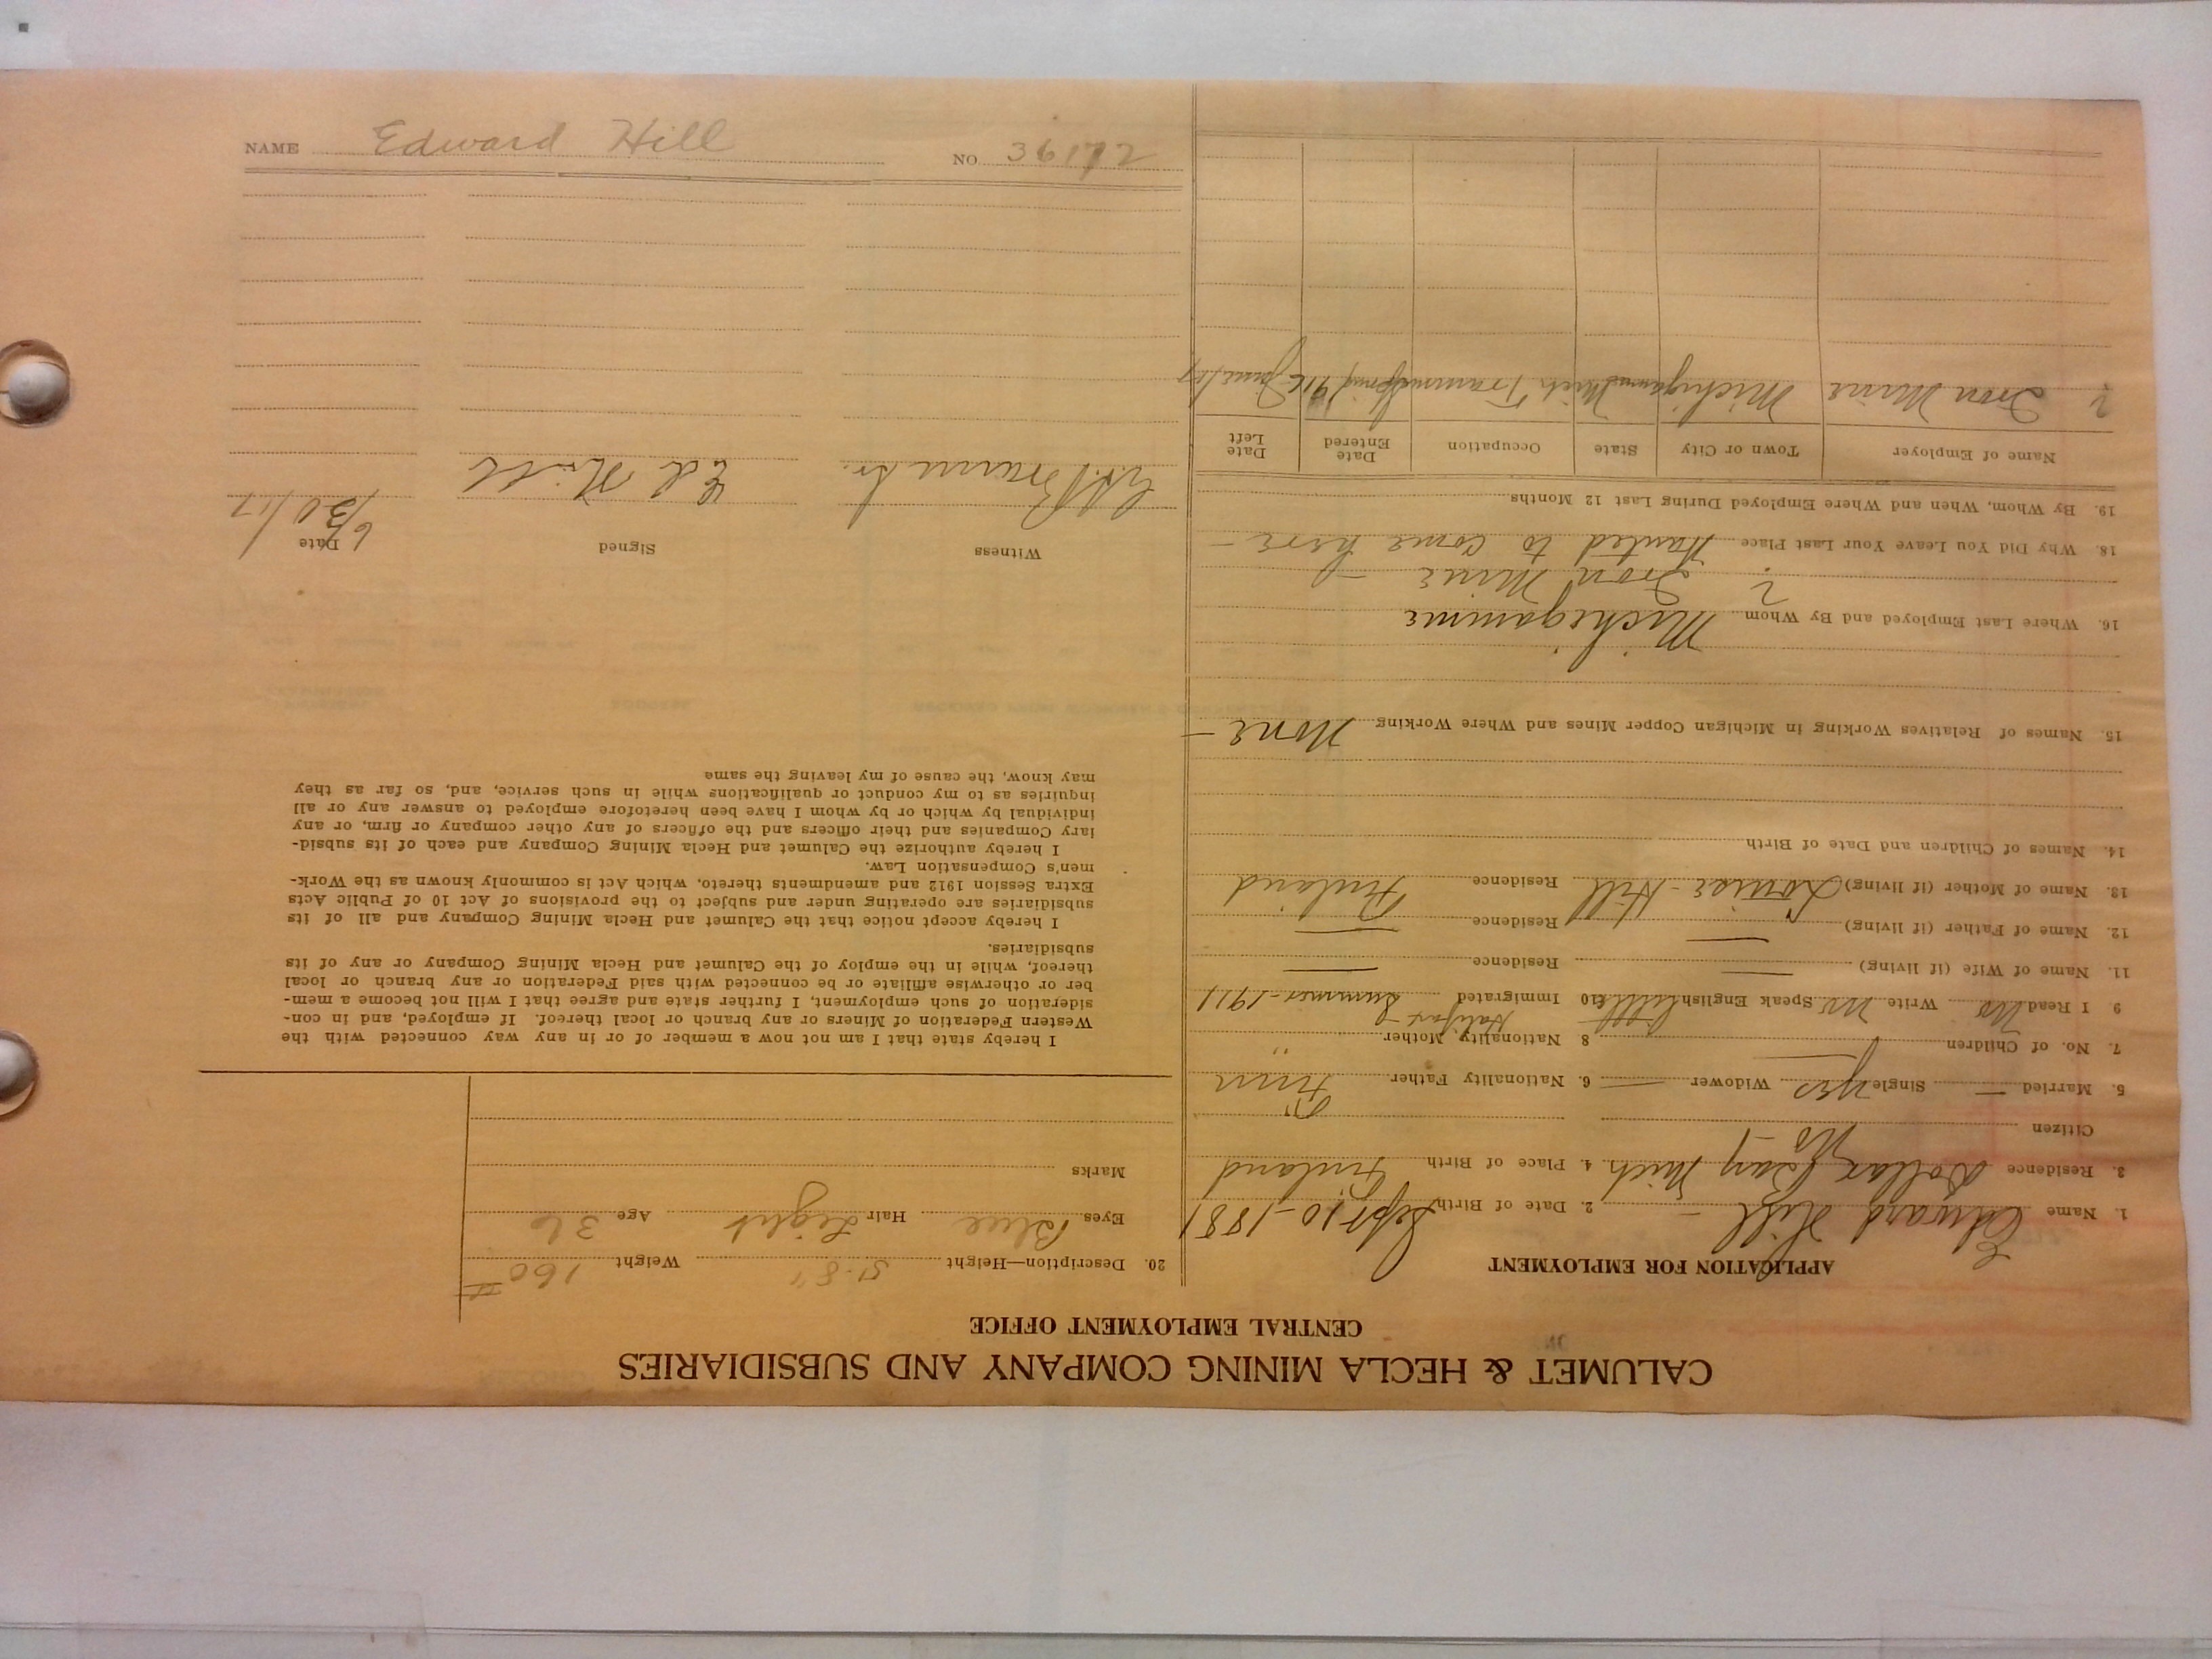 CALUMET & HECLA MINING COMPANY AND SUBSIDIARIES
CENTRAL EMPLOYMENT OFFICE
APPLICATION FOR EMPLOYMENT
1. Name Edward Hill - 2. Date of Birth Sept 10-1881
3. Residence Dollar Bay Mich. 4. Place of Birth Finland
Citizen No -
5. Married — Single Yes Widower — 6. Nationality Father Finn
7. No. of Children — 8 Nationality Mother "
9 I Read No Write No Speak English Little 10 Immigrated Halifax - Summer-1911
11. Name of Wife (if living) — Residence —
12. Name of Father (if living) — Residence —
13. Name of Mother (if living) Louise Hill Residence Finland
14. Names of Children and Date of Birth
15. Names of Relatives Working in Michigan Copper Mines and Where Working None -
16. Where Last Employed and By Whom Michigamme
? Iron Mine -
18. Why Did You Leave Your Last Place Wanted to come here -
19. By Whom, When and Where Employed During Last 12 Months
Name of Employer Town or City State Occupation Date Entered Date Left
? Iron Mine Michigamme Mich Trammer Spring 1916 June/17
20. Description—Height 5'-8" Weight 160#
Eyes Blue Hair Light Age 36
Marks
I hereby state that I am not now a member of or in any way connected with the
Western Federation of Miners or any branch or local thereof. If employed, and in con-
sideration of such employment, I further state and agree that I will not become a mem-
ber or otherwise affiliate or be connected with said Federation or any branch or local
thereof, while in the employ of the Calumet and Hecla Mining Company or any of its
subsidiaries.
I hereby accept notice that the Calumet and Hecla Mining Company and all of its
subsidiaries are operating under and subject to the provisions of Act 10 of Public Acts
Extra Session 1912 and amendments thereto, which Act is commonly known as the Work-
men's Compensation Law.
I hereby authorize the Calumet and Hecla Mining Company and each of its subsid-
iary Companies and their officers and the officers of any other company or firm, or any
individual by which or by whom I have been heretofore employed to answer any or all
inquiries as to my conduct or qualifications while in such service, and, so far as they
may know, the cause of my leaving the same
Witness Signed Date
Ed Hill 6/30/17
NAME Edward Hill NO 36172